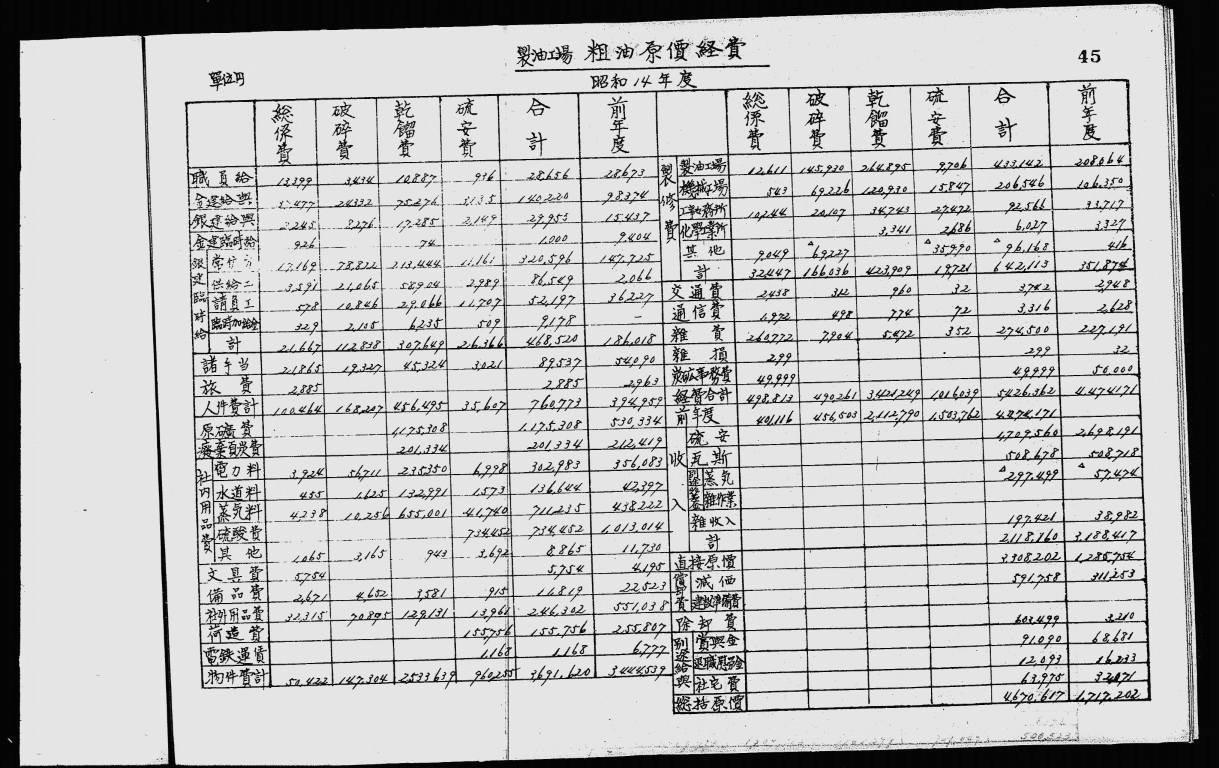 45
製油工場 粗油原價経費
單位円
昭和14年度
総係費 破碎費 乾餾費 硫安費 合計 前年度
職員給 13,399 3,434 10,887 936 28,656 28,673
金建給與 24,332 75,276 140,220 98,374
銀建給與 8,276 17,285 2,149 29,955 15,437
金建臨時給 926 74 1,000 9,404
銀建臨時給
17,169 78,822 213,444 11,161 320,596 147,725
供給工 3,591 21,065 58,904 2,989 86,549 2,066
請負工 578 10,846 29,066 11,707 52,197 36,227
臨時加給金 329 2,105 6,235 509 9,178 -
計 21,667 112,838 307,649 26,366 468,520 186,018
諸手当 21,865 19,327 45,324 3,021 89,537 54,090
旅費 2,885 2,885 2,963
人件費計 100,464 168,207 456,495 35,607 760,773 394,959
原礦費 1,175,308 1,175,308 530,334
廃棄頁炭費 201,334 201,334 212,419
社内用品費
電力料 3,924 56,711 235,350 6,998 302,983 356,083
水道料 455 1,625 132,991 1,573 136,644 42,397
蒸気料 4,238 10,256 655,001 41,740 711,235 438,222
硫酸費 734,452 734,452 1,013,014
其他 1,065 3,165 943 3,692 8,865 11,730
文具費 5,754 5,754 4,195
備品費 2,671 4,652 3,581 915 11,819 22,523
社外用品費 32,315 70,895 129,131 13,961 246,302 551,038
荷造費 155,756 155,756 255,807
電鉄運賃 1,168 1,168 6,777
物件費計 50,422 147,304 2,533,639 960,255 3,691,620 3,444,539
総係費 破碎費 乾餾費 硫安費 合計 前年度
製修費
製油工場 12,611 145,930 264,895 9,706 433,142 208,064
機械工場 543 69,226 120,930 15,847 206,546 106,350
工事事務所 10,244 20,107 34,743 27,472 92,566 33,717
化學工業所 3,341 2,686 6,027 3,327
其他 9,049 △69,227 △35,990 △96,168 416
計 32,447 166,036 423,909 19,721 642,113 351,874
交通費 2,438 312 960 32 3,742 2,948
通信費 1,972 498 774 72 3,316 2,628
雑費 260,772 7,904 5,472 352 274,500 227,191
雑損 299 299 32
炭砿事務費 49,999 49,999 50,000
経費合計 498,813 490,261 3,421,249 1,016,039 5,426,362 4,474,171
前年度 401,116 456,503 2,112,790 1,503,762 4,474,171
収入
硫安 1,709,560 2,698,191
瓦斯 508,678 508,718
蒸気 △297,499 △57,474
雑作業
雑収入 197,421 38,982
計 2,118,160 3,188,417
直接原價 3,308,202 1,285,754
償却費
減価 591,758 311,253
建設準備費
除却費 603,499 3,210
別途給與
賞與金 91,090 68,681
退職慰労金 12,093 16,233
社宅費 63,975 32,071
総括原價 4,670,617 1,717,202